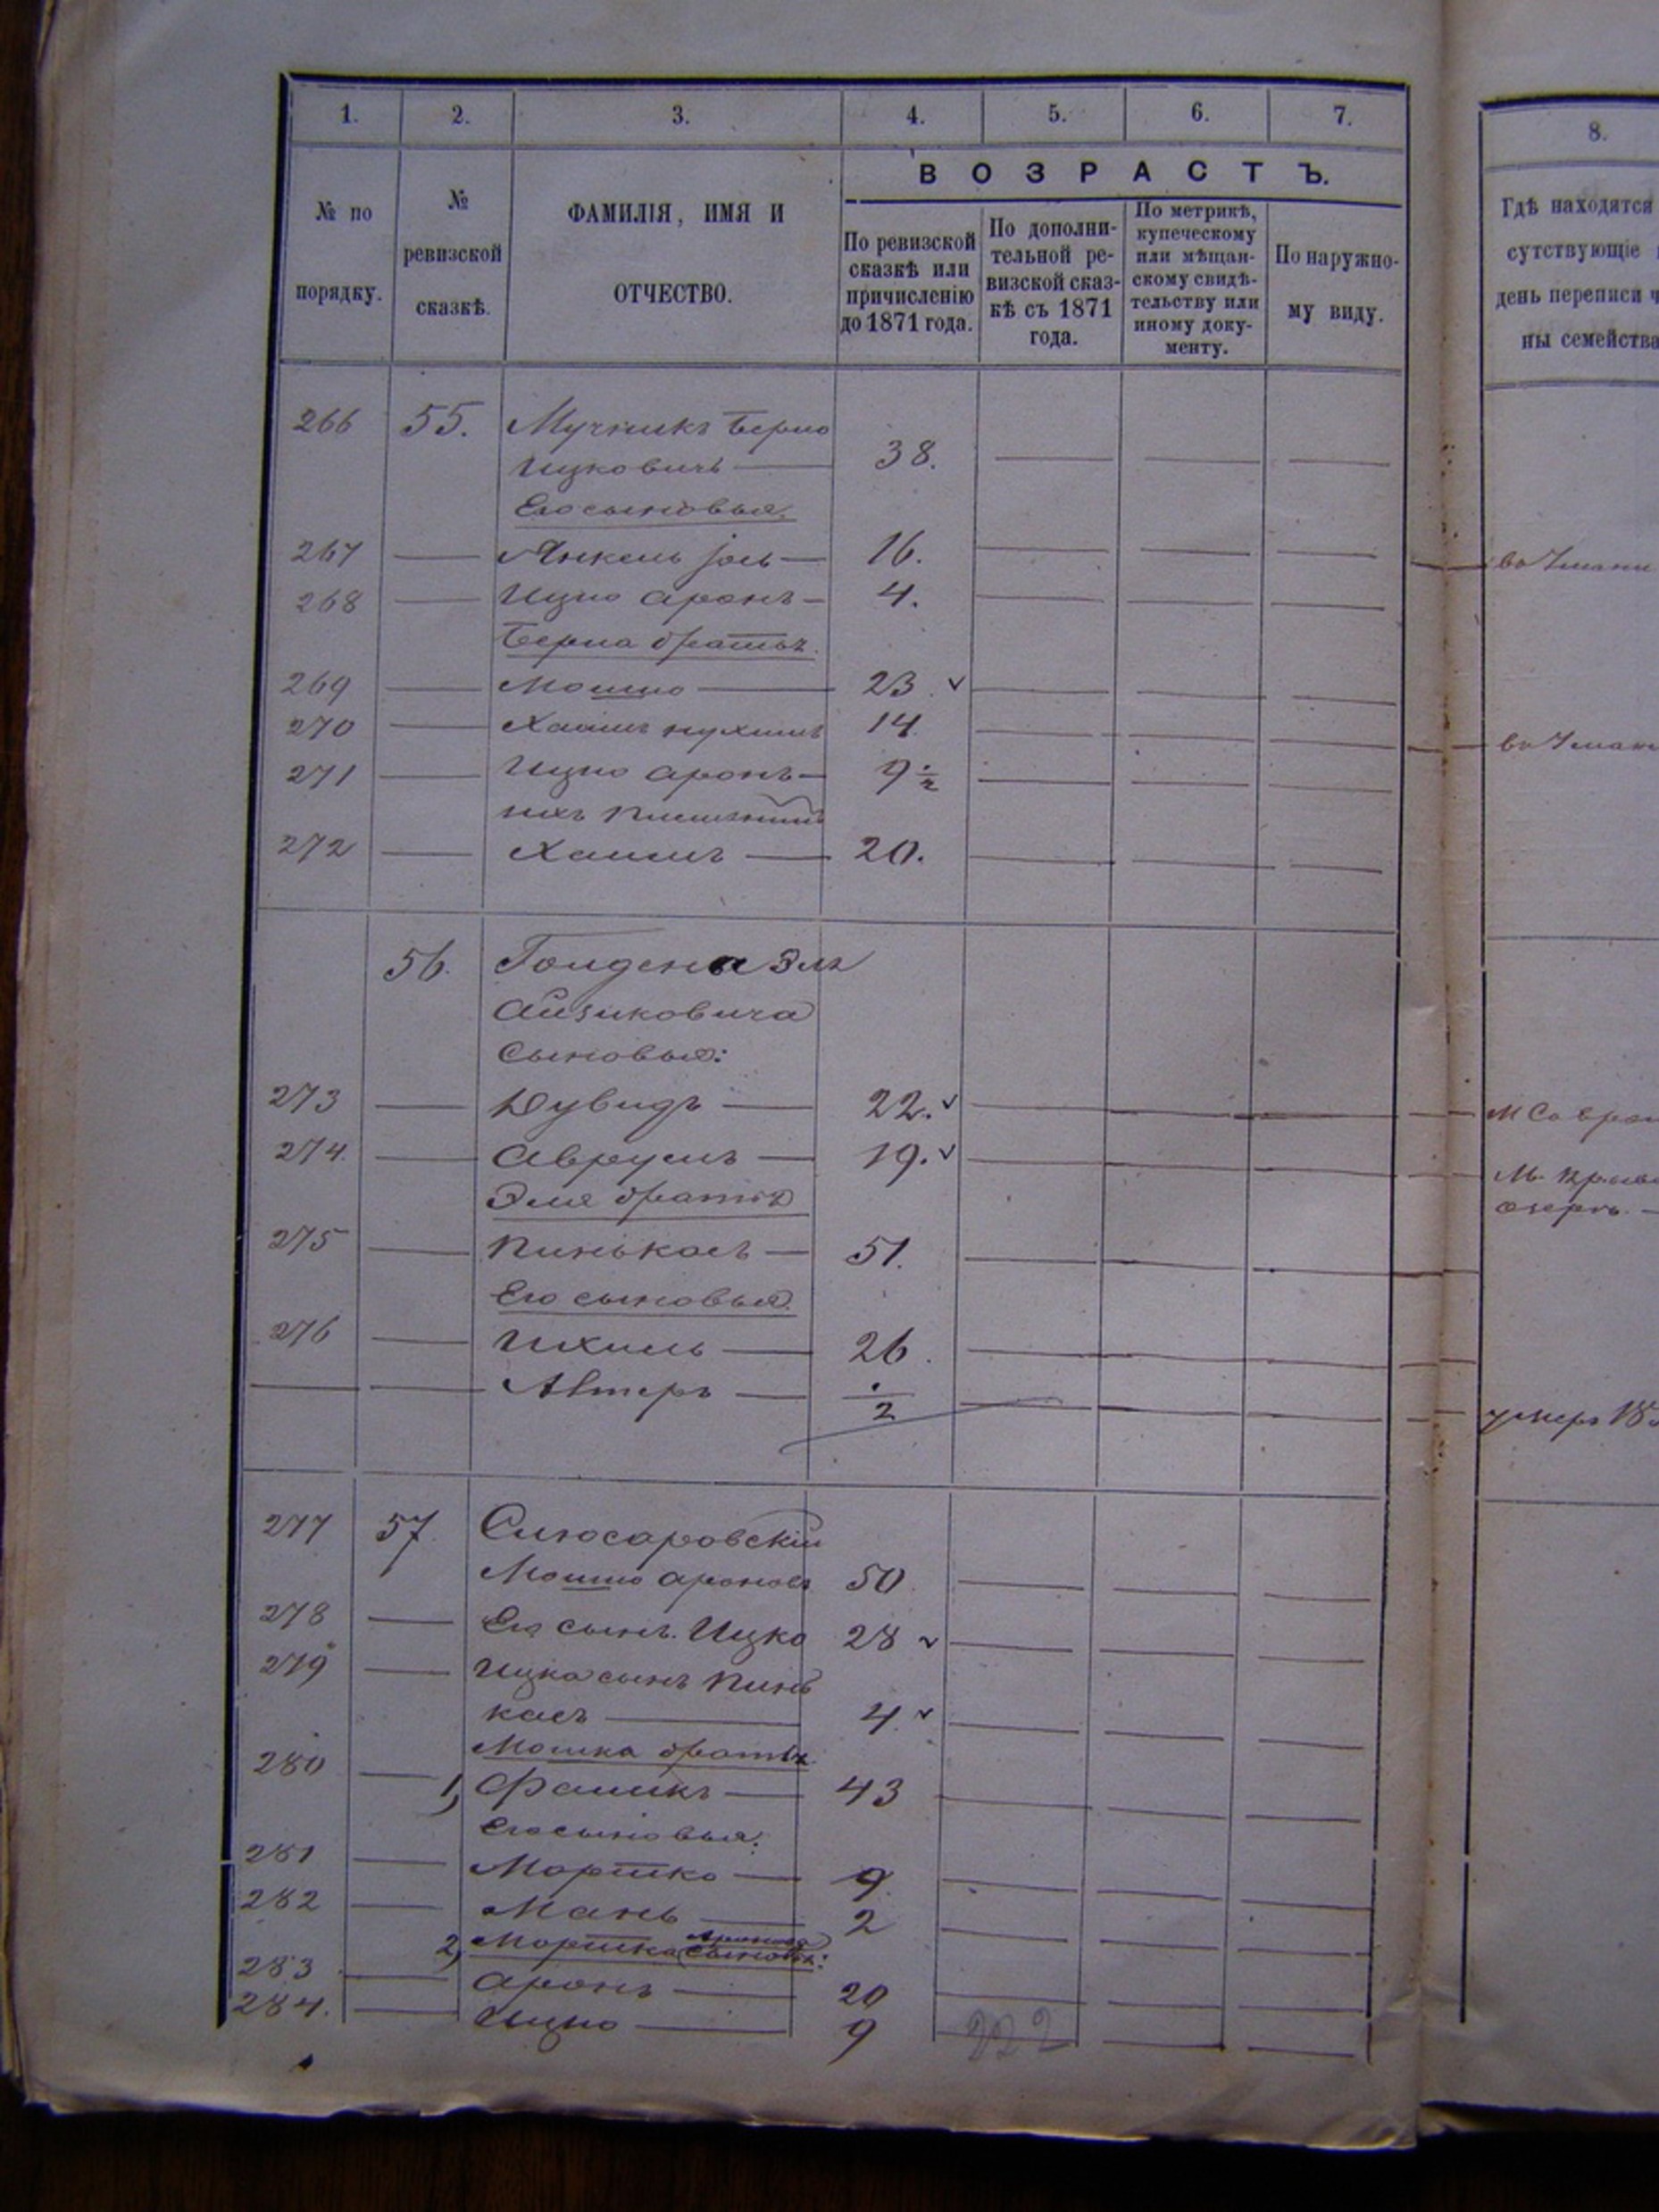 1. 2. 3. 4. 5. 6. 7. 8.
№ по порядку.
№ ревизской сказкѣ.
ФАМИЛІЯ, ИМЯ И ОТЧЕСТВО.
ВОЗРАСТЪ.
По ревизской сказкѣ или причисленію до 1871 года.
По дополнительной ревизской сказкѣ съ 1871 года.
По метрикѣ, купеческому или мѣщанскому свидѣтельству или иному документу.
По наружному виду.
Гдѣ находятся
сутствующіе
день переписи ч
ны семейства
266 55. Мучникъ Берко
Ицковичъ 38.
Его сыновья.
267 Янкель Іось 16.
268 Ицко Аронъ 4.
Берка братья.
269 Мошко 23.
270 Хаимъ Нухимъ 14
271 Ицко Аронъ 9 ½
ихъ
272 Хаимъ 20.
56. Голдена Эля
Айзиковича
Сыновья:
273 Дувидъ 22.
274. Аврумъ 19.
Эля братья
275 Пинькасъ 51.
Его сыновья.
276 Ихиль 26.
Алтеръ ½
умеръ 185
277 57 Слюсаровскій
Мошко Ароновъ 50
278 Его сынъ Ицко 28
279 Ицка сынъ Пинь
касъ 4.
Мошка братья
280 1, Фаликъ 43
Его сыновья:
281 Мортко 9.
282 Мань 2
2, Мортка Аронова сыновья:
283 Аронъ 20
284. Ицко 9
222